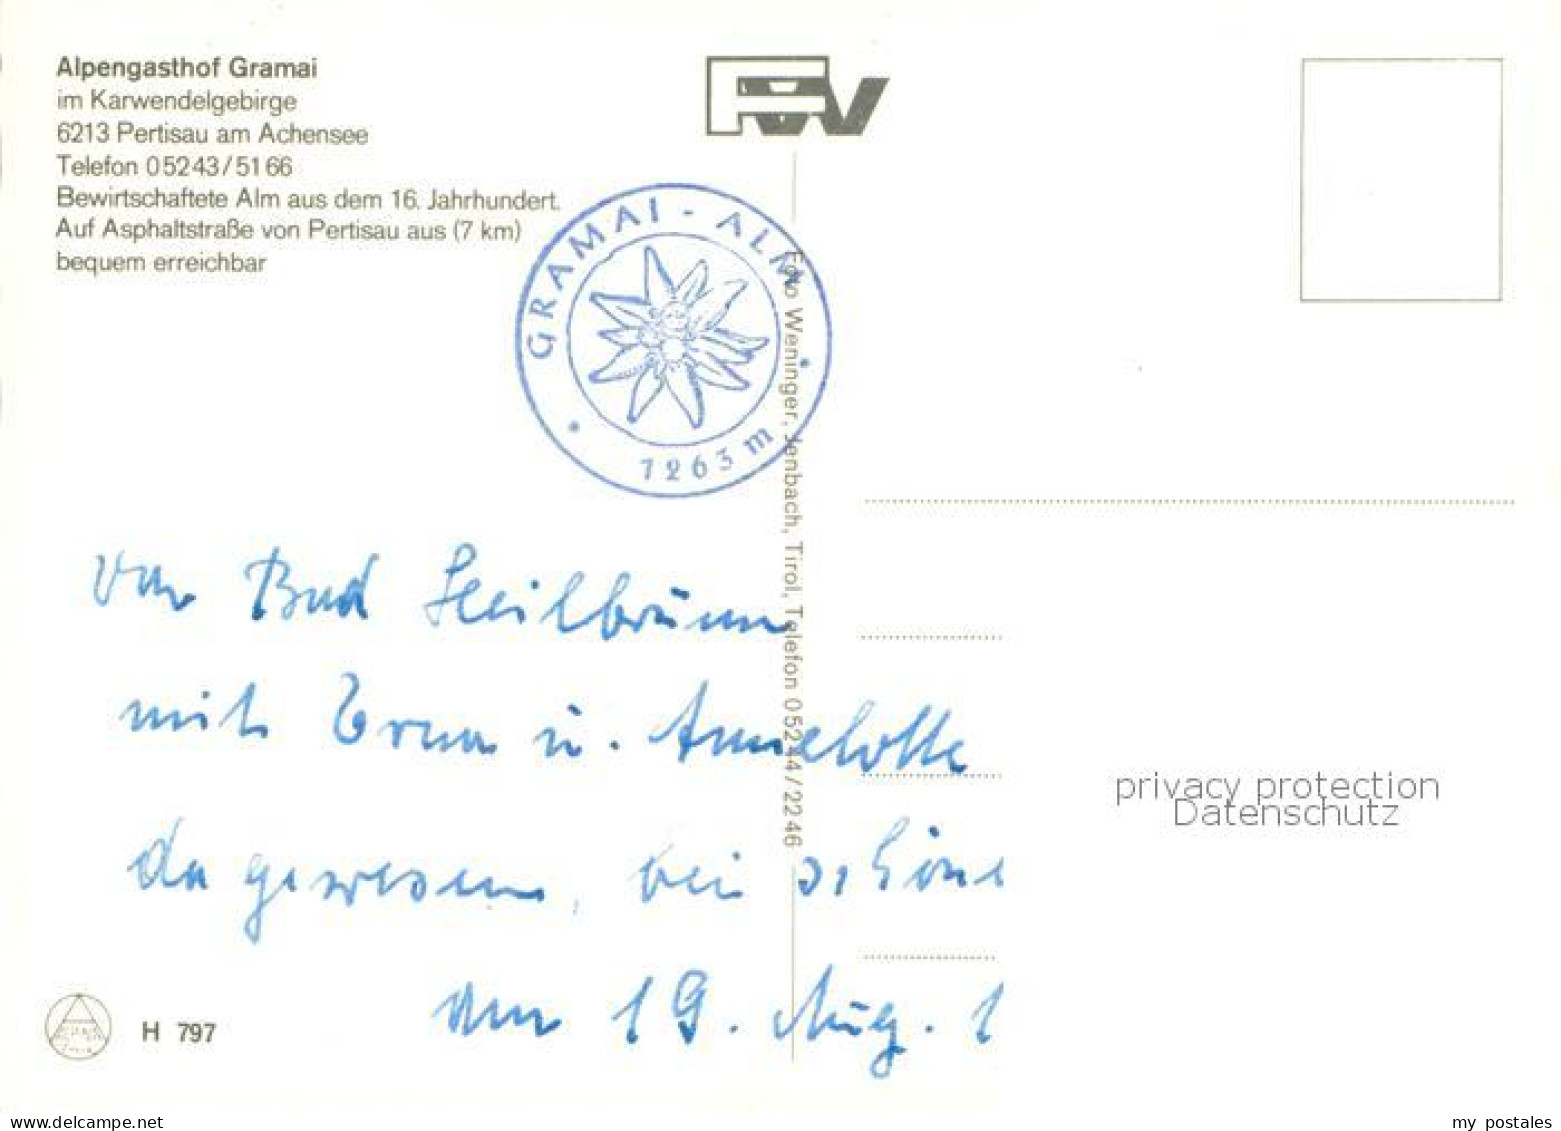 Alpengasthof Gramai
im Karwendelgebirge
6213 Pertisau am Achensee
Telefon 05243/5166
Bewirtschaftete Alm aus dem 16. Jahrhundert.
Auf Asphaltstraße von Pertisau aus (7 km)
bequem erreichbar
FW
GRAMAI - ALM
1263 m
Foto Weninger, Jenbach, Tirol, Telefon 05244/2246
Von Bad Heilbrunn
mit Erna u. Annelotte
da gewesen, bei schöne
am 19. Aug. 1
privacy protection
Datenschutz
H 797
delcampe.net
my_postales